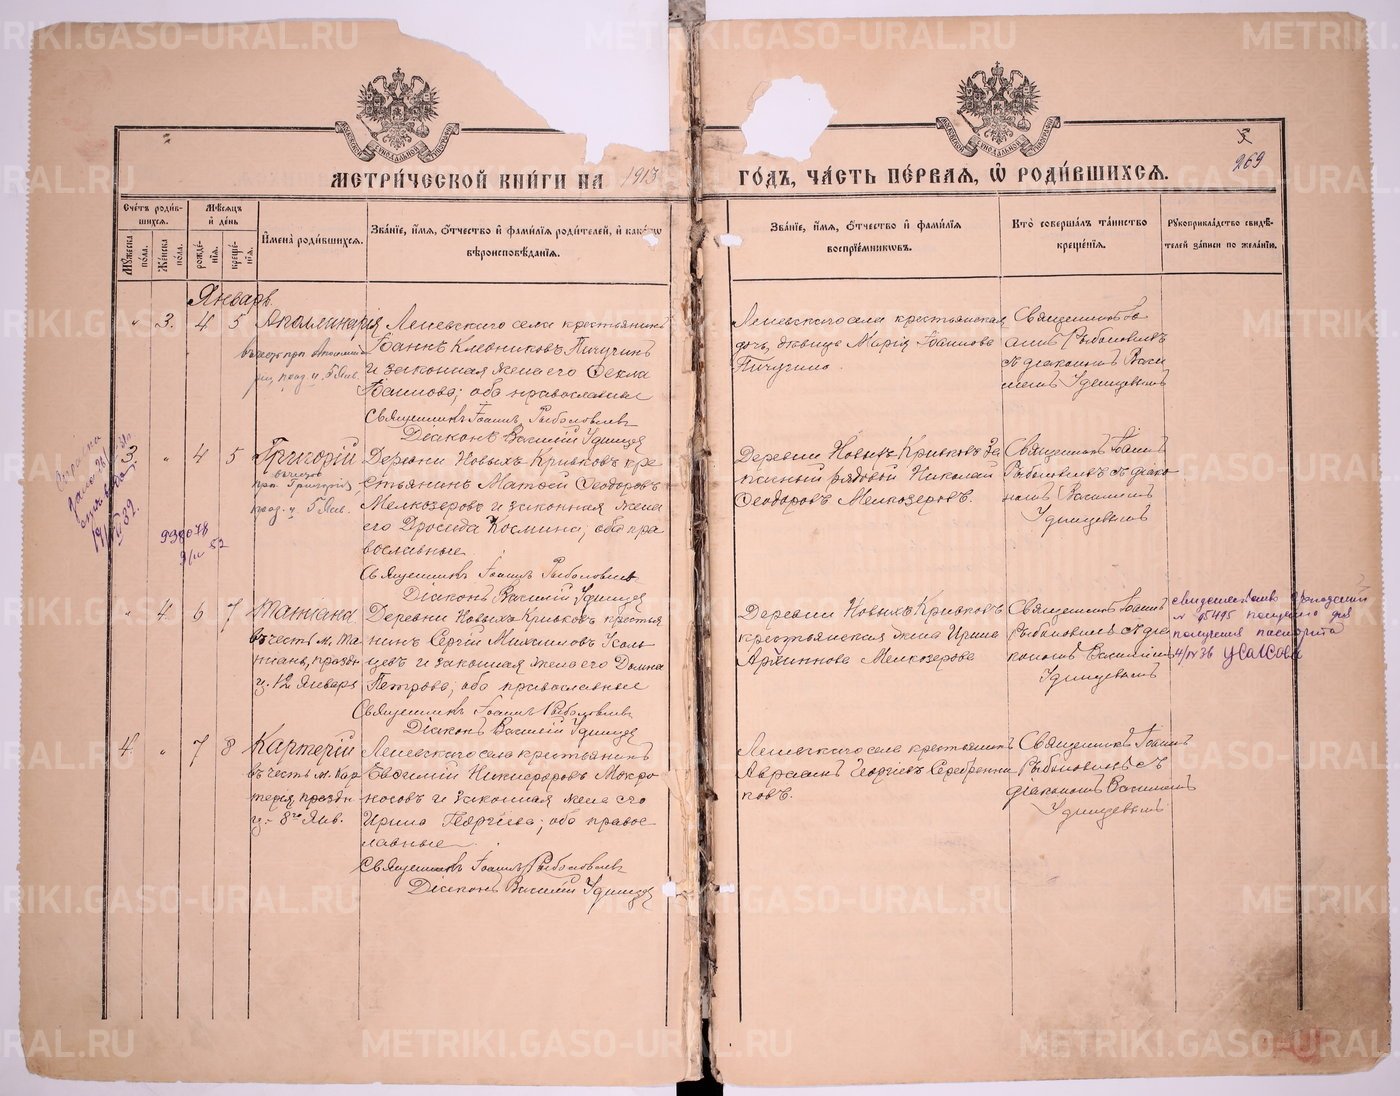 МЕТРИ́ЧЕСКОЙ КНИ́ГИ НА 1913
ГО́ДЪ, ЧА́СТЬ ПЕ́РВАЯ, Ѡ҆ РОДИ́ВШИХСЯ.
269
Сче́тъ роди́в-
шихся.
Мѣ́сяцъ
и҆ де́нь
Му́жеска по́ла.
Же́нска по́ла.
рожде́-
нїя.
креще́-
нїя.
И҆мена̀ роди́вшихся.
Зва́нїе, и҆́мя, ѻ҆́тчество и҆ фами́лїя роди́телей, и҆ како́гѡ
вѣроисповѣ́данїя.
Зва́нїе, и҆́мя, ѻ҆́тчество и҆ фами́лїя
воспрїе́мникѡвъ.
Кто̀ соверша́лъ та́инство
креще́нїя.
Рꙋкоприкла́дство свидѣ́-
телей за́писи по жела́нїю.
Январь
3. 4 5
Аполинарія
празд. ц. 5 Янв.
Леневскаго села крестьянинъ
Іоаннъ Пичугинъ
и законная жена его Фекла
Іоаннова; оба православные
Священникъ Іоаннъ Рыболовлевъ
Діаконъ Василій Удинцев
Леневскаго села крестьянская
дочь, дѣвица Марія Іоаннова
Пичугина.
Священник Іо-
анн Рыболовлевъ
съ діакономъ Васи
ліемъ Удинцевымъ
3 4 5
Григорій
въ честь
пр. Григорія,
празд. ц. 5 Янв.
939078
9/II 52
Деревни Новыхъ Кривковъ кре-
стьянинъ Матѳей Ѳеодоровъ
Мелкозеровъ и законная жена
его Дросида Космина; оба пра
вославные
Священникъ Іоаннъ Рыболовлевъ
Діаконъ Василій Удинцев
Деревни Новыхъ Кривковъ За-
пасный рядовой Николай
Ѳеодоровъ Мелкозеровъ.
Священникъ Іоаннъ
Рыболовлевъ съ діако-
номъ Василіемъ
Удинцевымъ
4 6 7
Татіана
въ честь м. Та
тіаны, праздн.
ц. 12 Января
Деревни Новыхъ Кривковъ крестья
нинъ Сергій Михаиловъ Усоль
цевъ и законная жена его Домна
Петрова; оба православные
Священникъ Іоаннъ Рыболовлевъ
Діаконъ Василій Удинцев
Деревни Новыхъ Кривковъ
крестьянская жена Ирина
Архиппова Мелкозерова
Священникъ Іоаннъ
Рыболовлевъ съ діа
кономъ Василіемъ
Удинцевымъ
№ 15495 получено для
получения паспорта
4/IV 36
4. 7 8
Картерій
въ честь м. Кар
терія, праздн
ц. 8го Янв.
Леневскаго села крестьянинъ
Евсигній Никифоровъ Мокро-
носовъ и законная жена его
Ирина Георгіева; оба право-
славные
Священникъ Іоаннъ Рыболовлевъ
Діаконъ Василій Удинцев
Леневскаго села крестьянинъ
Авраамъ Георгіевъ Серебренни
ковъ.
Священникъ Іоаннъ
Рыболовлевъ съ
діакономъ Василіемъ
Удинцевымъ
METRIKI.GASO-URAL.RU